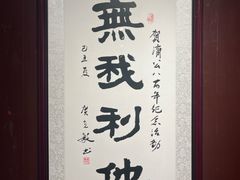 賀濟公八百年紀念活動
無我利他
己丑夏